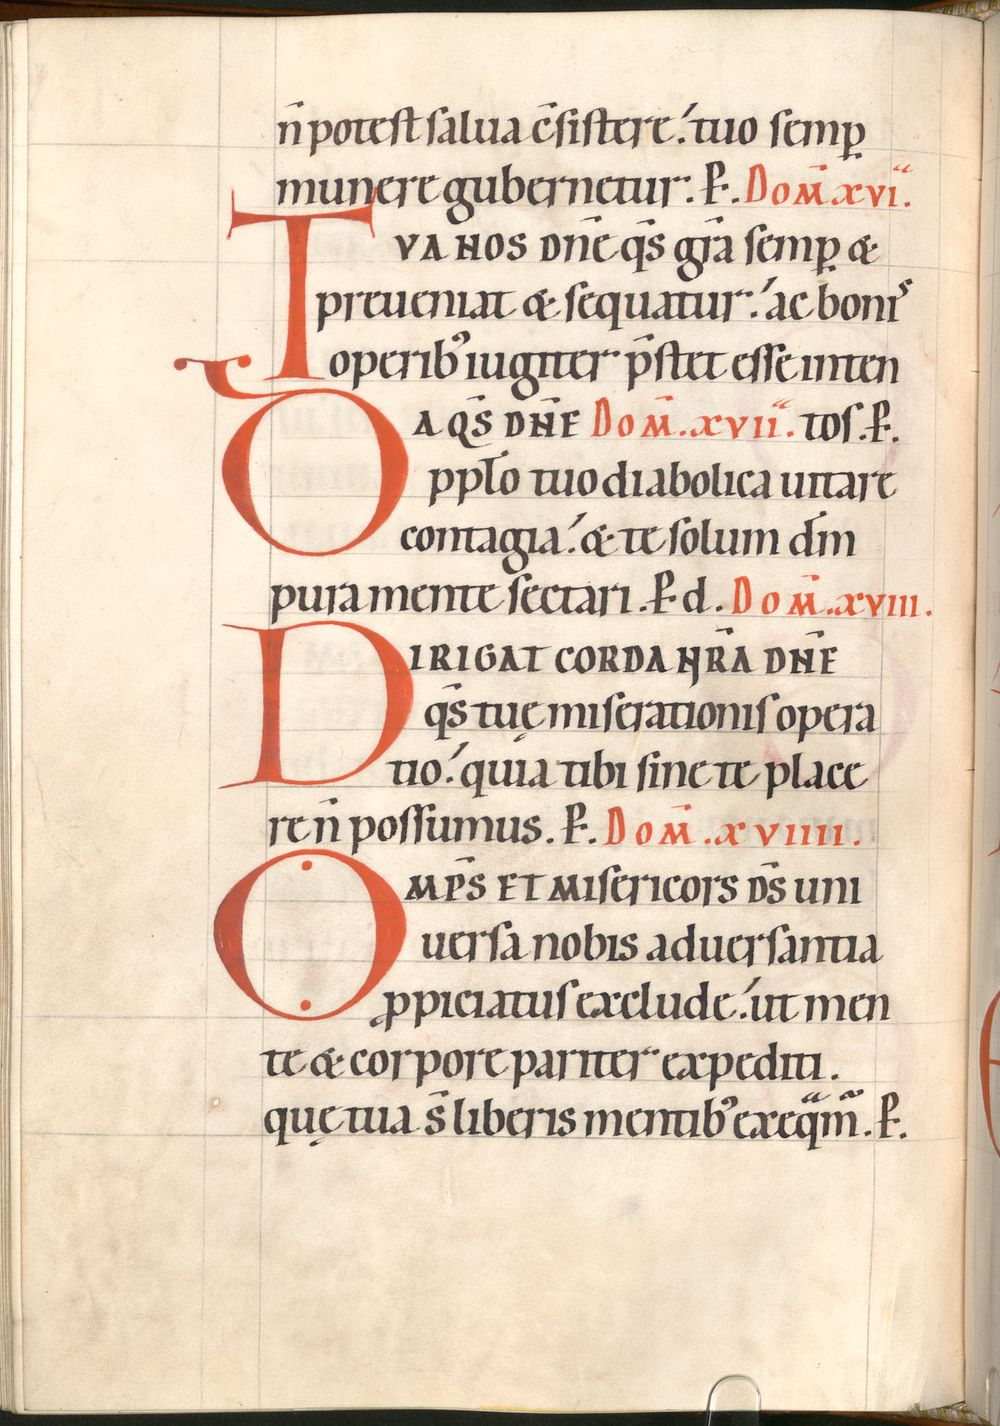 n̄ potest salua c̄sistere! tuo semꝑ
munere gubernetur. P̱. Dom̄. xvi.ᵃ
TVA NOS DN̄E q̄s gr̄a semꝑ &
preueniat & sequatur! ac bonis
operib; iugiter p̄stet esse inten
DA Q̄S DN̄E Dom̄. xvii.ᵃ tos. P̱.
pplō tuo diabolica uitare
contagia! & te solum dm̄
pura mente sectari. P̱ d. Dom̄. xviii.
DIRIGAT CORDA NR̄A DN̄E
q̄s tuę miserationis opera
tio! quia tibi sine te place
re n̄ possumus. P̱. Dom̄. xviiii.
OMPS̄ ET Misericors DS̄ uni
uersa nobis aduersantia
ꝓpiciatus exclude! ut men
te & corpore pariter expediti.
quę tua s̄ liberis mentib; exeq̄m̄. P̱.